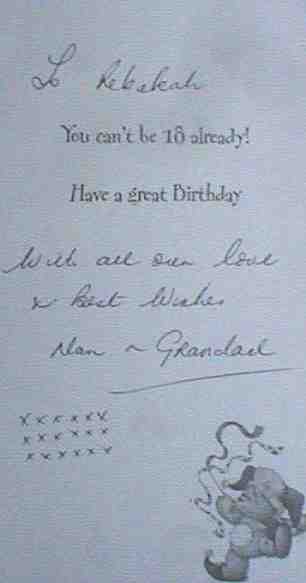 To Rebekah
You can't be 18 already!
Have a great Birthday
With all our love
& best Wishes
Nan & Grandad
x x x x x x
x x x x x x
x x x x x x